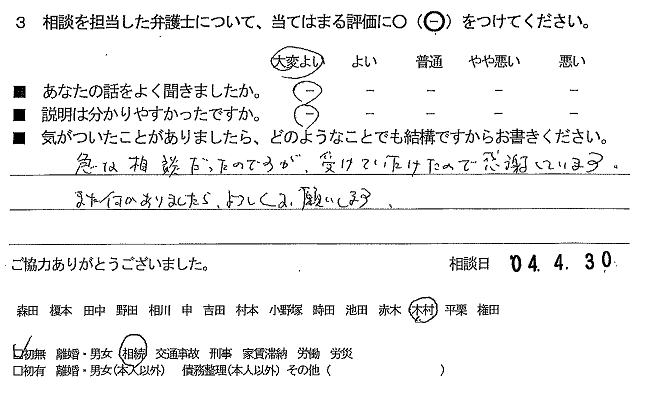 3 相談を担当した弁護士について、当てはまる評価に○（⊖）をつけてください。
大変よい よい 普通 やや悪い 悪い
■ あなたの話をよく聞きましたか。 － － － － －
■ 説明は分かりやすかったですか。 － － － － －
■ 気がついたことがありましたら、どのようなことでも結構ですからお書きください。
急な相談だったのですが、受けていただけたので感謝しています。
また何かありましたら、よろしくお願いします。
ご協力ありがとうございました。 相談日 '04. 4. 30
森田 榎本 田中 野田 相川 申 吉田 村本 小野塚 時田 池田 赤木 木村 平栗 権田
□初無 離婚・男女 相続 交通事故 刑事 家賃滞納 労働 労災
□初有 離婚・男女(本人以外) 債務整理(本人以外) その他（ ）